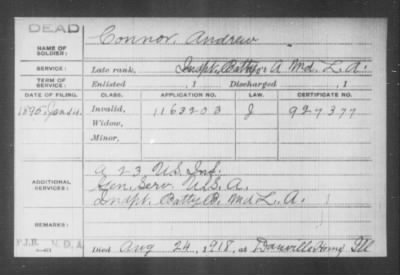 DEAD
NAME OF SOLDIER: Connor, Andrew
SERVICE: Late rank, Indpt. Batty A Md. L. A.
TERM OF SERVICE: Enlisted , 1 Discharged , 1
DATE OF FILING. CLASS. APPLICATION NO. LAW. CERTIFICATE NO.
1895, Jan 4. Invalid, 1163203 J 927377
Widow,
Minor,
ADDITIONAL SERVICES: A 23 U.S. Inf.
Gen. Serv. U.S.A.
Indpt. Batty B. Md L. A.
REMARKS:
Died Aug 24, 1918, at Danville Home Ill
P.J.R. N.D.A.